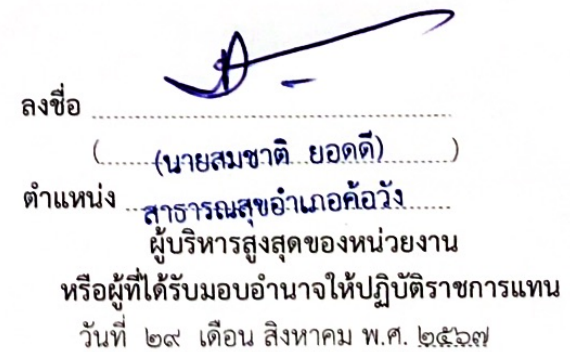 ลงชื่อ ........................................................
(........(นายสมชาติ ยอดดี)............)
ตำแหน่ง ....สาธารณสุขอำเภอค้อวัง........
ผู้บริหารสูงสุดของหน่วยงาน
หรือผู้ที่ได้รับมอบอำนาจให้ปฏิบัติราชการแทน
วันที่ ๒๙ เดือน สิงหาคม พ.ศ. ๒๕๖๗